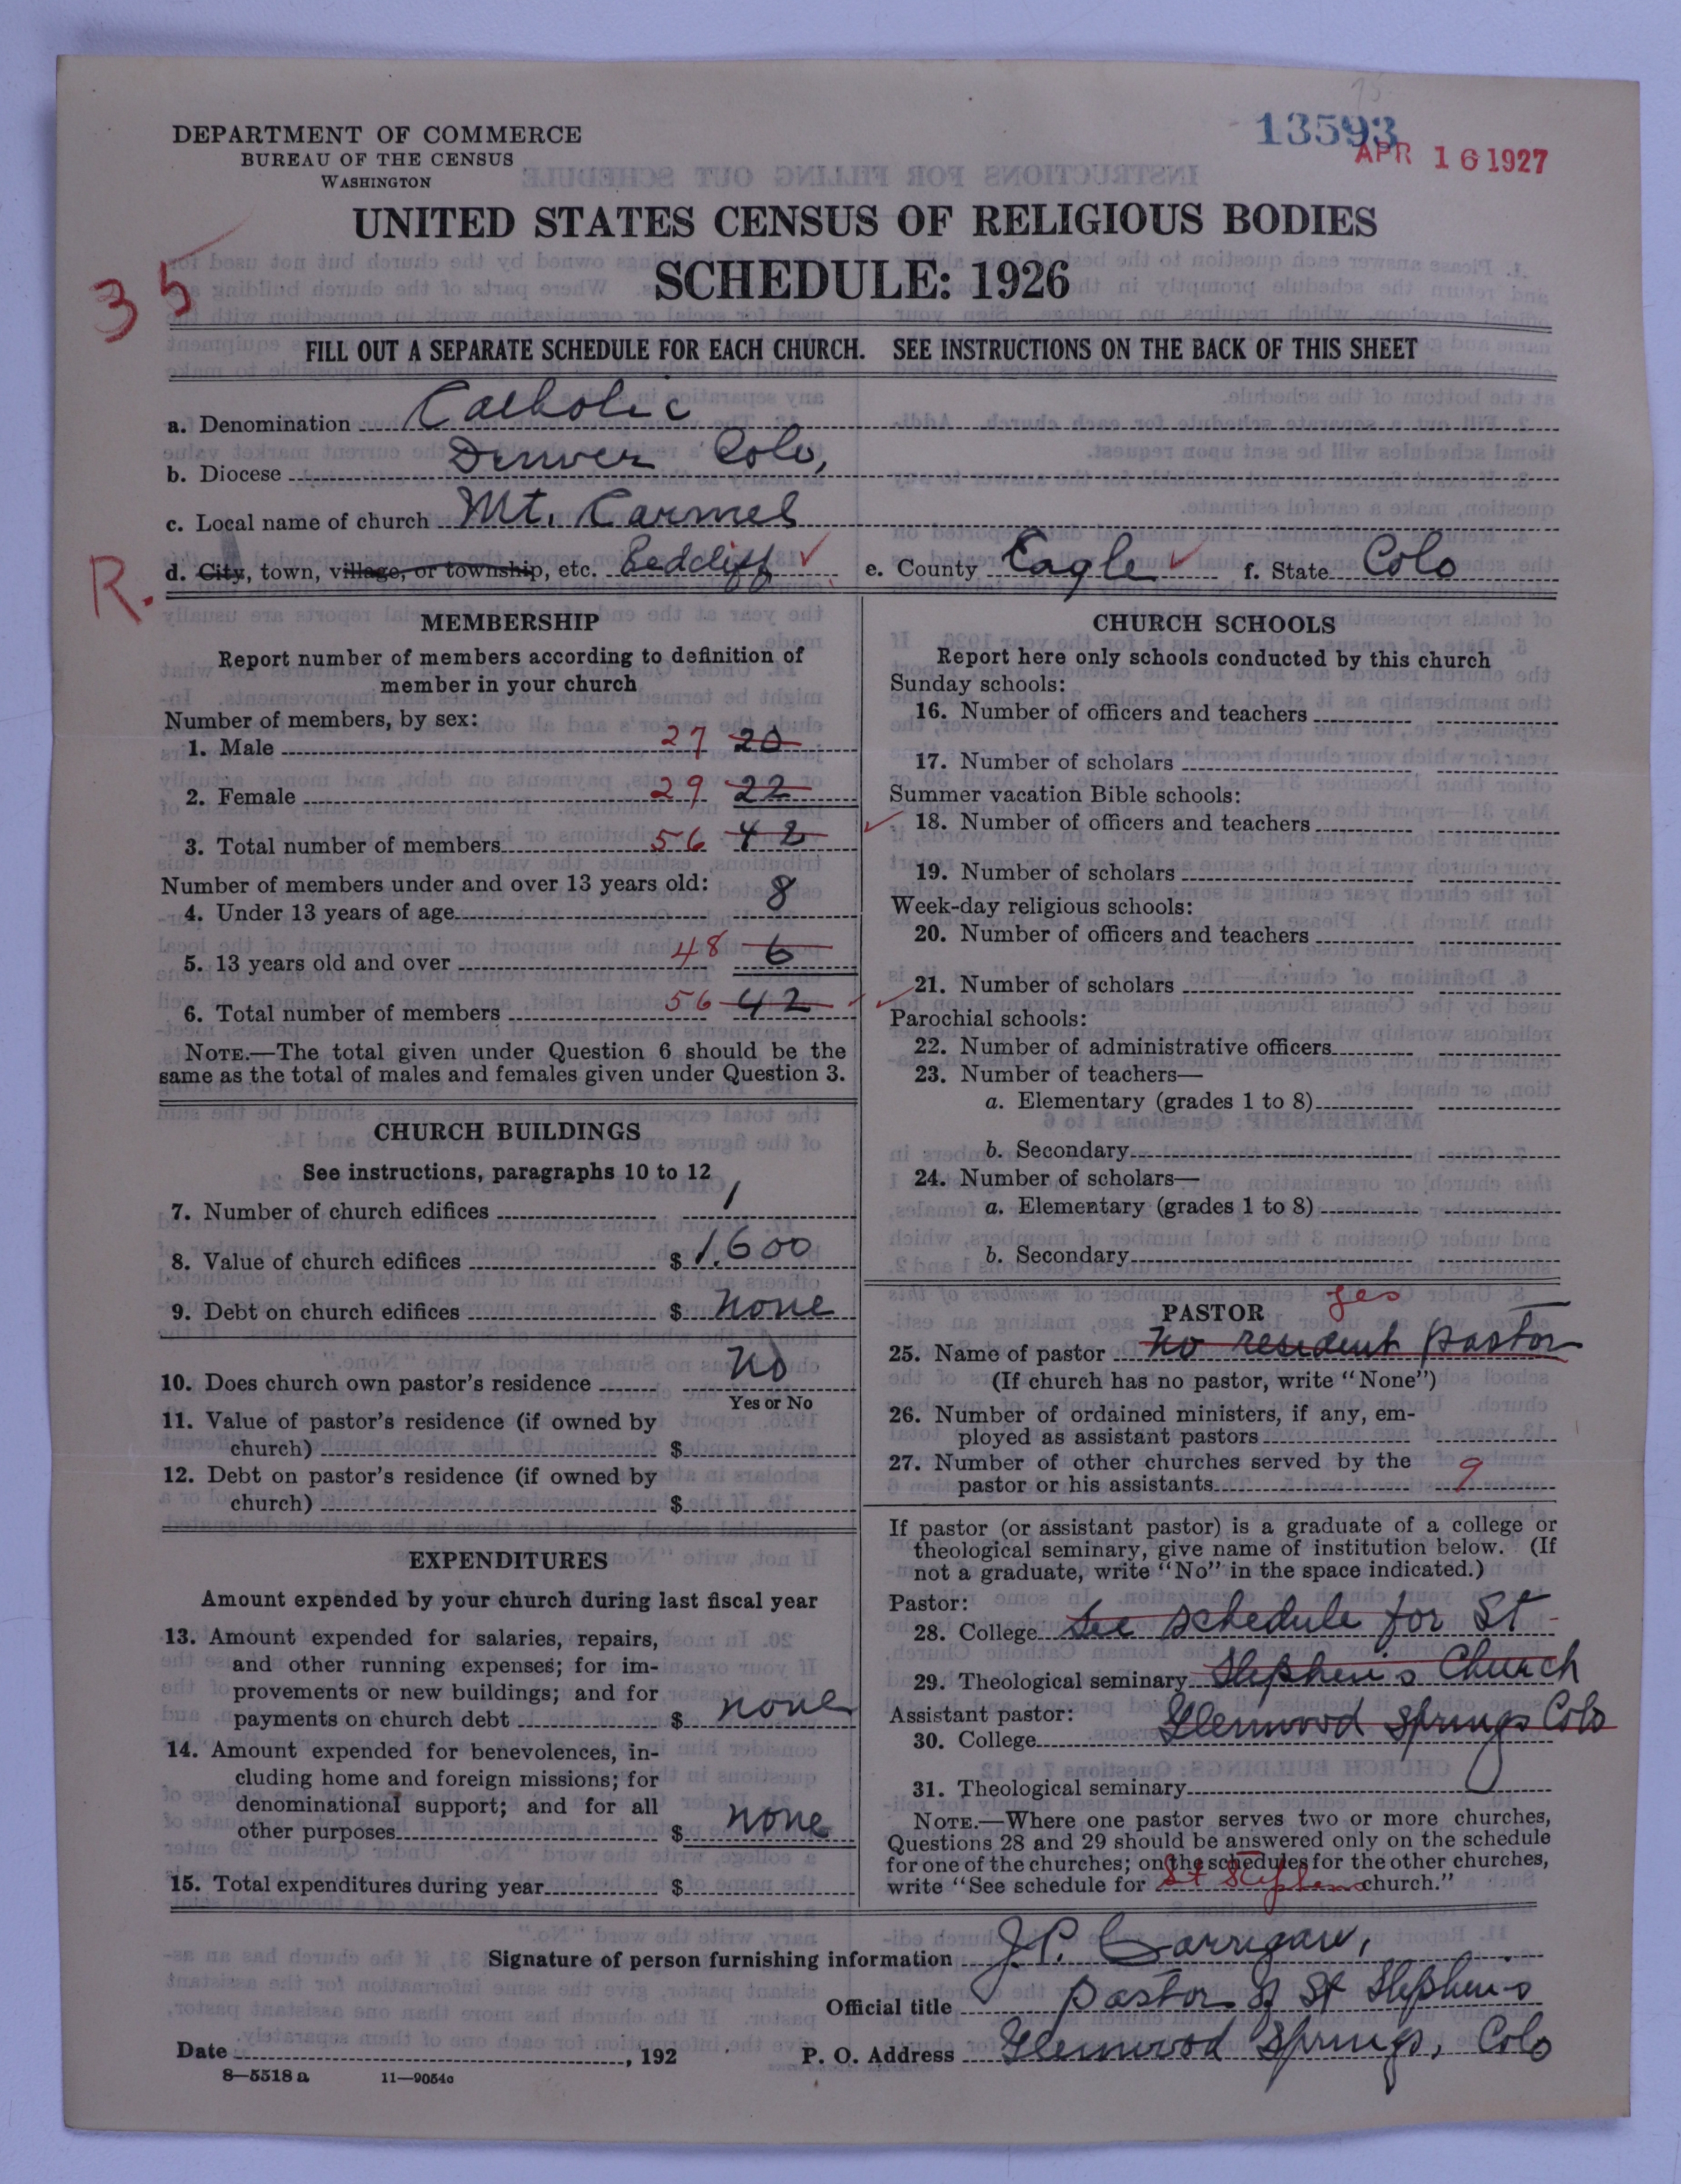 13593
APR 16 1927
DEPARTMENT OF COMMERCE
BUREAU OF THE CENSUS
WASHINGTON
UNITED STATES CENSUS OF RELIGIOUS BODIES
SCHEDULE: 1926
35
FILL OUT A SEPARATE SCHEDULE FOR EACH CHURCH. SEE INSTRUCTIONS ON THE BACK OF THIS SHEET
a. Denomination Catholic
b. Diocese Denver Colo,
c. Local name of church Mt. Carmel
R.
d. City, town, village, or township, etc. Redcliff e. County Eagle f. State Colo
MEMBERSHIP
Report number of members according to definition of
member in your church
Number of members, by sex:
1. Male 27 20
2. Female 29 22
3. Total number of members 56 42
Number of members under and over 13 years old:
4. Under 13 years of age 8
5. 13 years old and over 48 6
6. Total number of members 56 42
NOTE.—The total given under Question 6 should be the
same as the total of males and females given under Question 3.
CHURCH BUILDINGS
See instructions, paragraphs 10 to 12
7. Number of church edifices 1
8. Value of church edifices $ 1,600
9. Debt on church edifices $ none
10. Does church own pastor's residence No
Yes or No
11. Value of pastor's residence (if owned by
church) $
12. Debt on pastor's residence (if owned by
church) $
EXPENDITURES
Amount expended by your church during last fiscal year
13. Amount expended for salaries, repairs,
and other running expenses; for im-
provements or new buildings; and for
payments on church debt $ none
14. Amount expended for benevolences, in-
cluding home and foreign missions; for
denominational support; and for all
other purposes $ none
15. Total expenditures during year $
CHURCH SCHOOLS
Report here only schools conducted by this church
Sunday schools:
16. Number of officers and teachers
17. Number of scholars
Summer vacation Bible schools:
18. Number of officers and teachers
19. Number of scholars
Week-day religious schools:
20. Number of officers and teachers
21. Number of scholars
Parochial schools:
22. Number of administrative officers
23. Number of teachers—
a. Elementary (grades 1 to 8)
b. Secondary
24. Number of scholars—
a. Elementary (grades 1 to 8)
b. Secondary
PASTOR yes
25. Name of pastor no resident pastor
(If church has no pastor, write "None")
26. Number of ordained ministers, if any, em-
ployed as assistant pastors
27. Number of other churches served by the
pastor or his assistants 9
If pastor (or assistant pastor) is a graduate of a college or
theological seminary, give name of institution below. (If
not a graduate, write "No" in the space indicated.)
Pastor:
28. College See schedule for St
29. Theological seminary Stephen's Church
Assistant pastor: Glenwood Springs Colo
30. College
31. Theological seminary
NOTE.—Where one pastor serves two or more churches,
Questions 28 and 29 should be answered only on the schedule
for one of the churches; on the schedules for the other churches,
write "See schedule for St Stephens church."
Signature of person furnishing information J.P. Carrigan,
Official title Pastor of St Stephen's
Date , 192 P. O. Address Glenwood Springs, Colo
8—5518 a 11—9054c